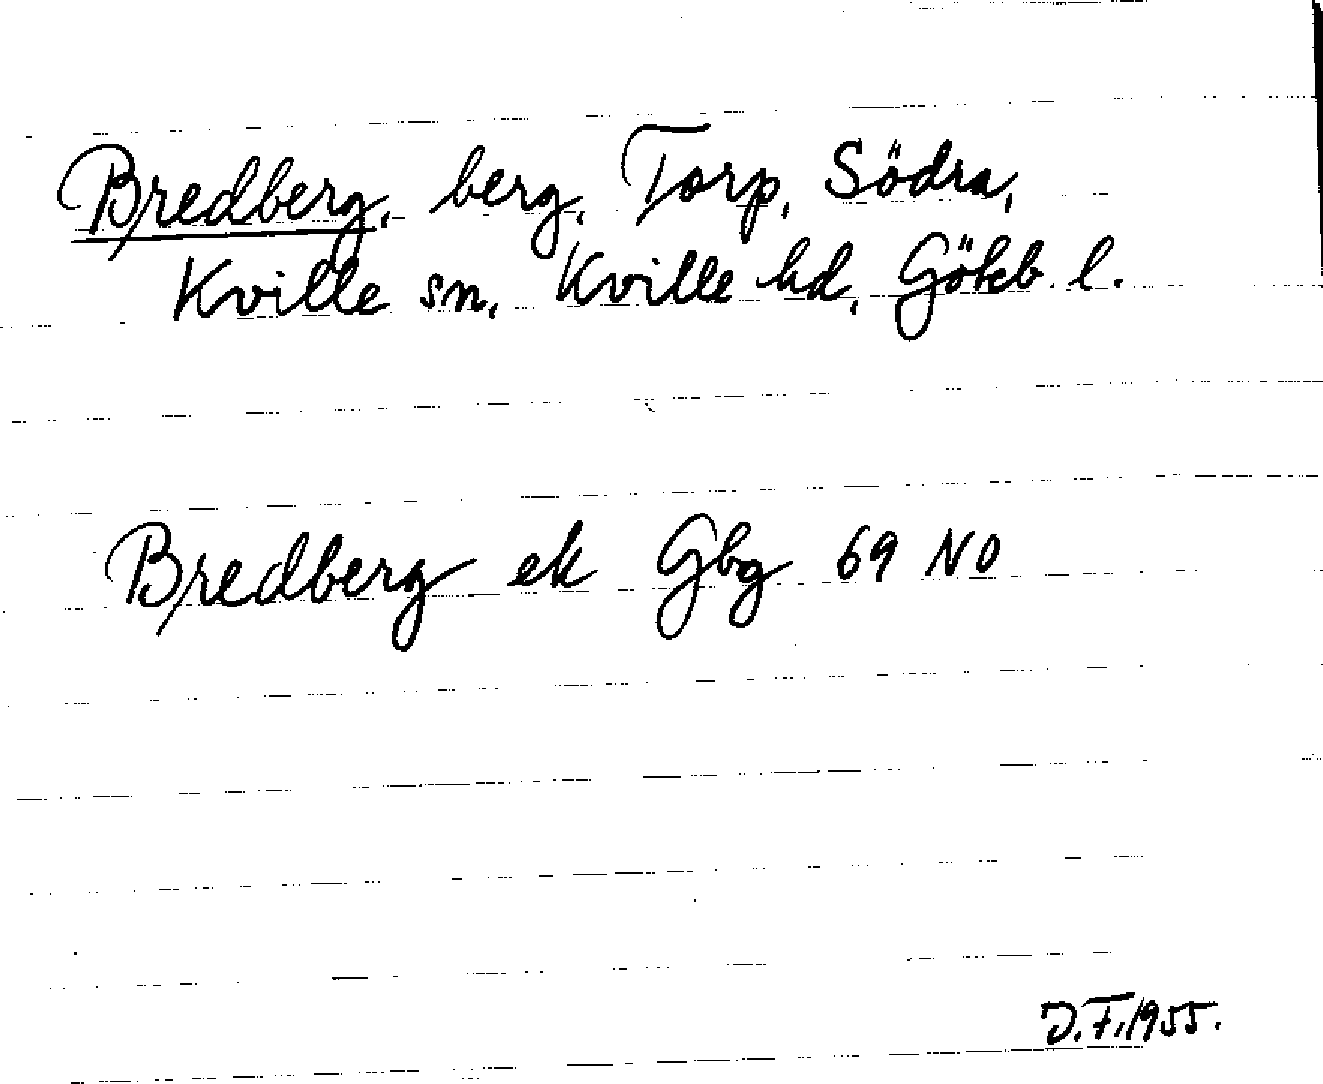 Bredberg, berg, Torp, Södra,
Kville sn, Kville hd, Göteb. l.
Bredberg ek Gbg 69 NO
D.F. 1955.